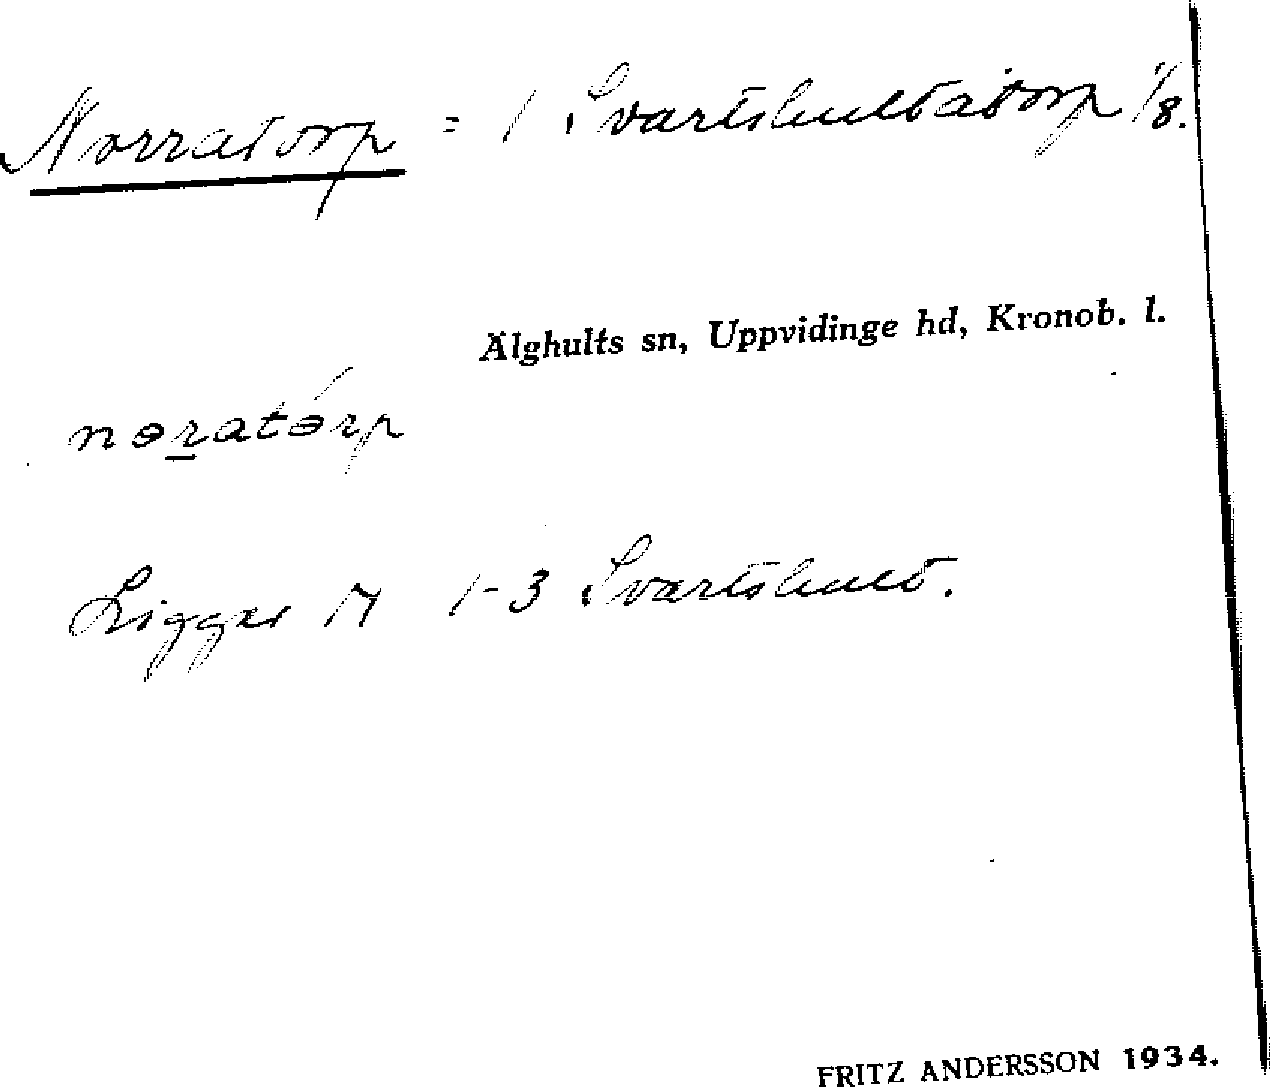 Norratorp = 1 Svartshultatorp 1/8.
Älghults sn, Uppvidinge hd, Kronob. l.
nɵratɵ́rp
Ligger N 1-3 Svartshult.
FRITZ ANDERSSON 1934.